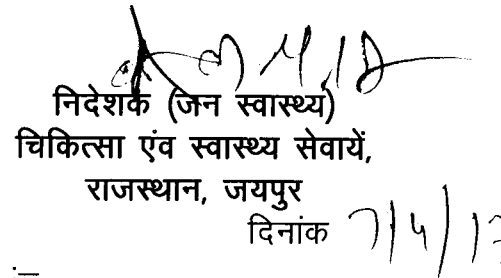 निदेशक (जन स्वास्थ्य)
चिकित्सा एंव स्वास्थ्य सेवायें,
राजस्थान, जयपुर
दिनांक 7/4/